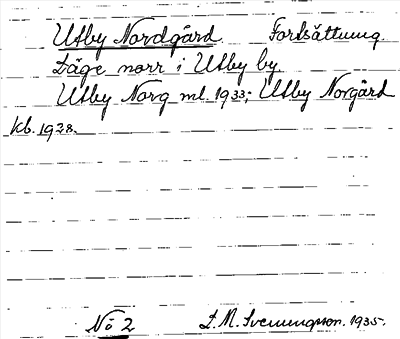 Utby Nordgård Fortsättning.
Läge norr i Utby by.
Utby Norg ml. 1933; Utby Norgård
kb. 1928.
Nö 2 L. M. Svenungsson. 1935.